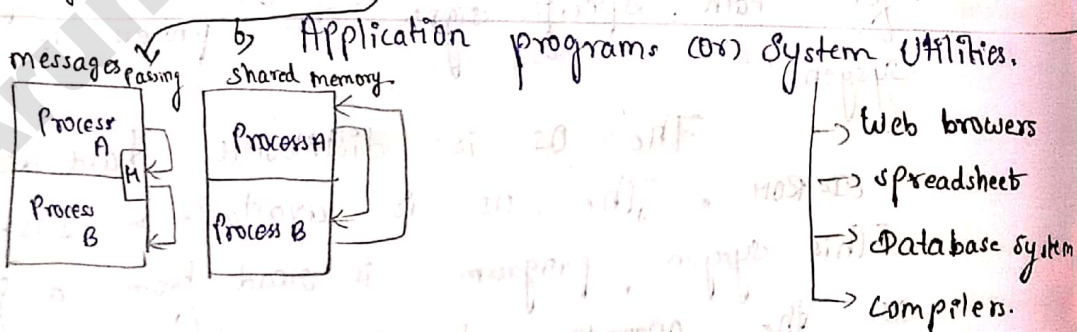 b, Application programs (or) System Utilities.
messages passing
Process A
M
Process B
shared memory
Process A
Process B
→ Web browers
→ spreadsheet
→ Database system
→ compilers.